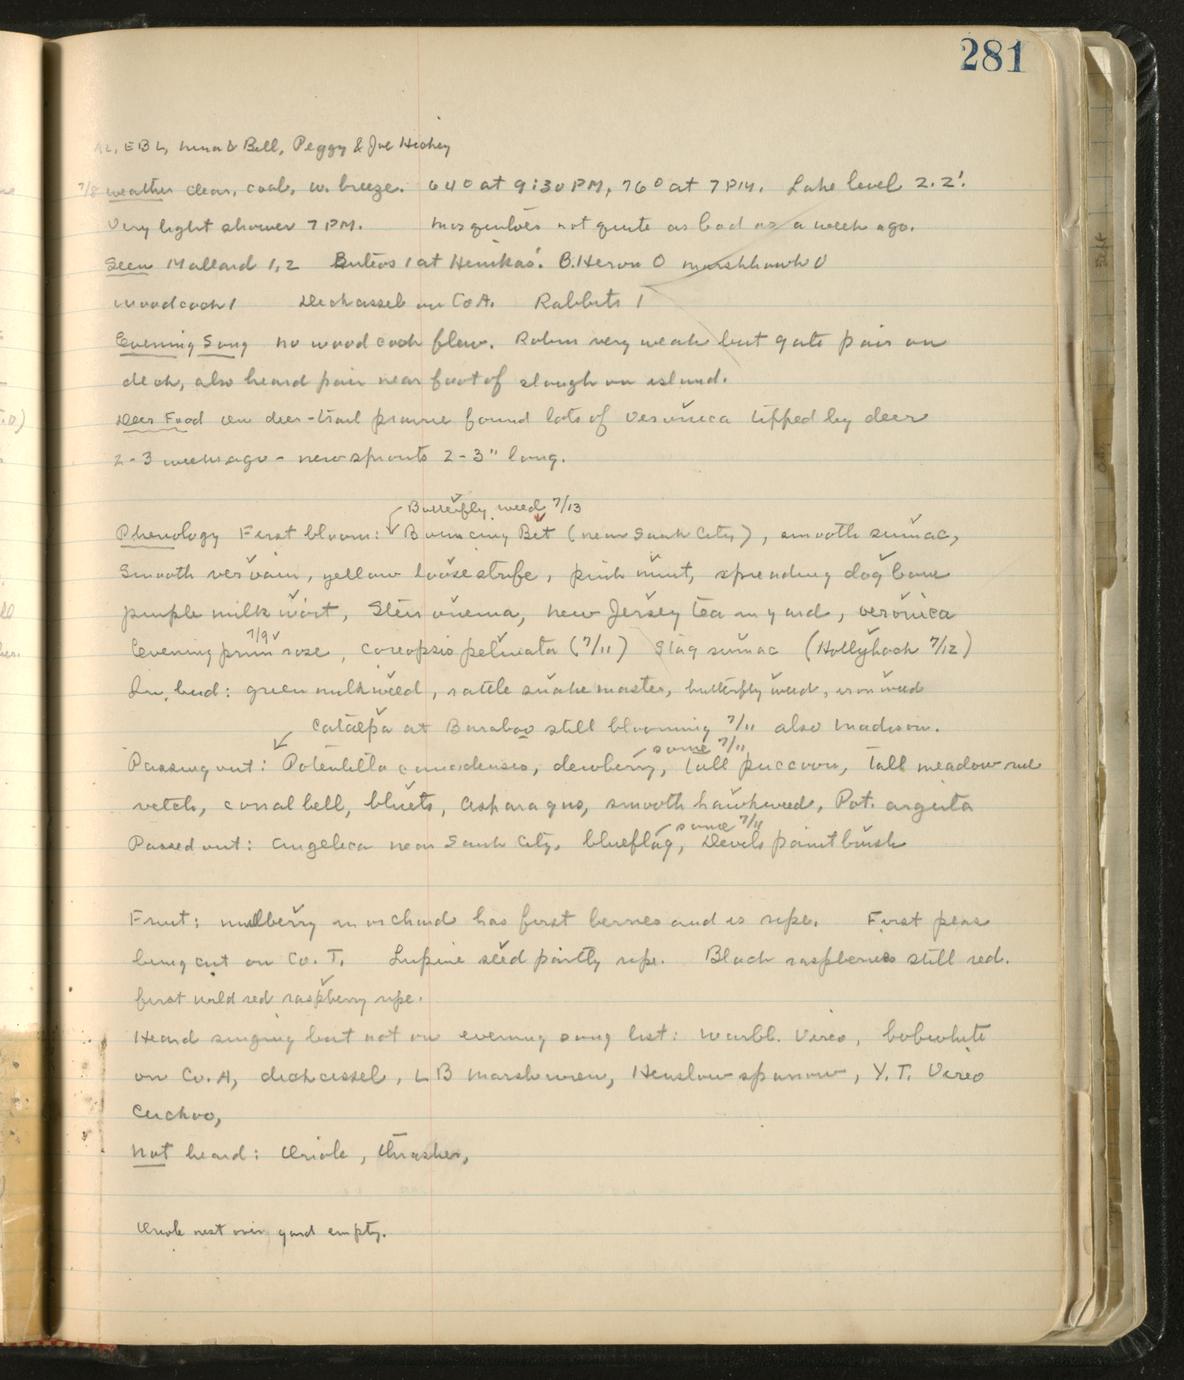 281
AL, EBL, Nina & Bill, Peggy & Joe Hickey
7/8 Weather clear, cool, w. breeze. 64° at 9:30 PM, 76° at 7 PM. Lake level 2.2'.
Very light shower 7 PM. Mosquitoes not quite as bad as a week ago.
Seen Mallard 1,2 Buteos 1 at Henikas'. B. Heron 0 marshhawk 0
woodcock 1 Dickcissel on Co A. Rabbits 1
Evening Song no woodcock flew. Robin very weak but gate pair on
deck, also heard pair near foot of slough on island.
Deer Food On deer-trail prairie found lots of Veronica tipped by deer
2-3 weeks ago - new sprouts 2-3" long.
Butterfly weed 7/13
Phenology First bloom: Bouncing Bet (near Sauk City), smooth sumac,
Smooth vervain, yellow loosestrife, pink mint, spreading dogbane
purple milkwort, Steironema, New Jersey tea in yard, veronica
7/9
Evening primrose, coreopsis palmata (7/11) Stag sumac (Hollyhock 7/12)
In bud: green milkweed, rattlesnake master, butterfly weed, ironweed
Catalpa at Baraboo still blooming 7/11 also Madison.
some 7/11
Passing out: Potentilla canadensis, dewberry, tall puccoon, Tall meadow rue
vetch, corral bell, bluets, Asparagus, smooth hawkweed, Pot. arguta
some 7/11
Passed out: Angelica near Sauk City, blueflag, Devils paintbrush
Fruit: mulberry in orchard has first berries and is ripe. First peas
being cut on Co. T. Lupine seed partly ripe. Black raspberries still red.
first wild red raspberry ripe.
Heard singing but not on evening song list: Warbl. Vireo, bobwhite
on Co. A, dickcissel, LB Marsh wren, Henslow sparrow, Y. T. Vireo
Cuckoo,
Not heard: Oriole, thrasher,
Oriole nest over yard empty.